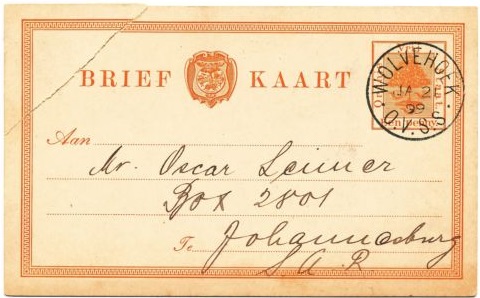 BRIEF KAART
WOLVEHOEK.
JA 2
99
O.V.S.S.
Een Penny.
Aan
Mr. Oscar Leimer
Box 2801
Te Johannesburg
S A R